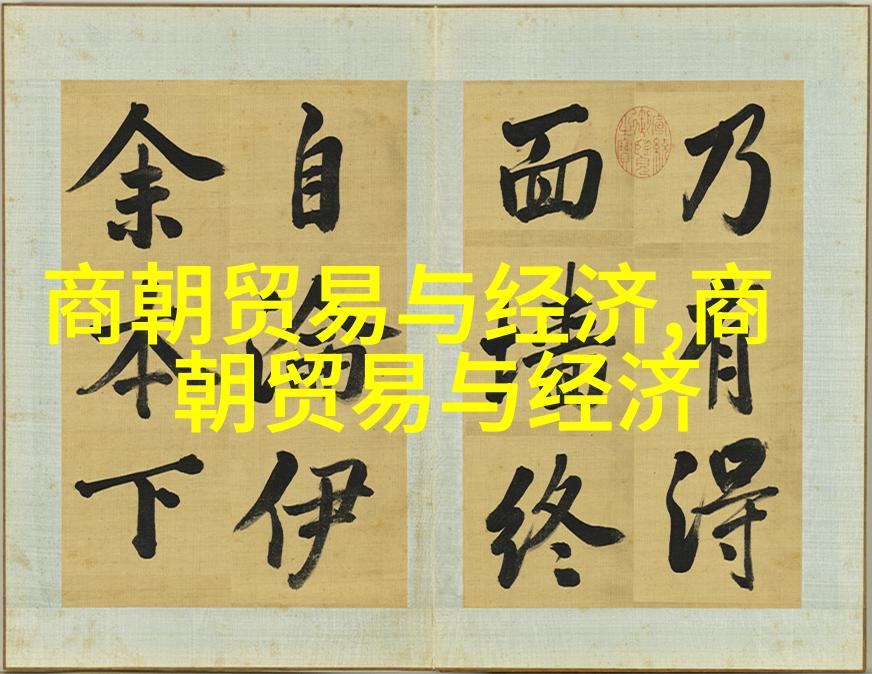 商朝贸易与经济,商
朝贸易与经济
乃有得
面終
自伊
余本下